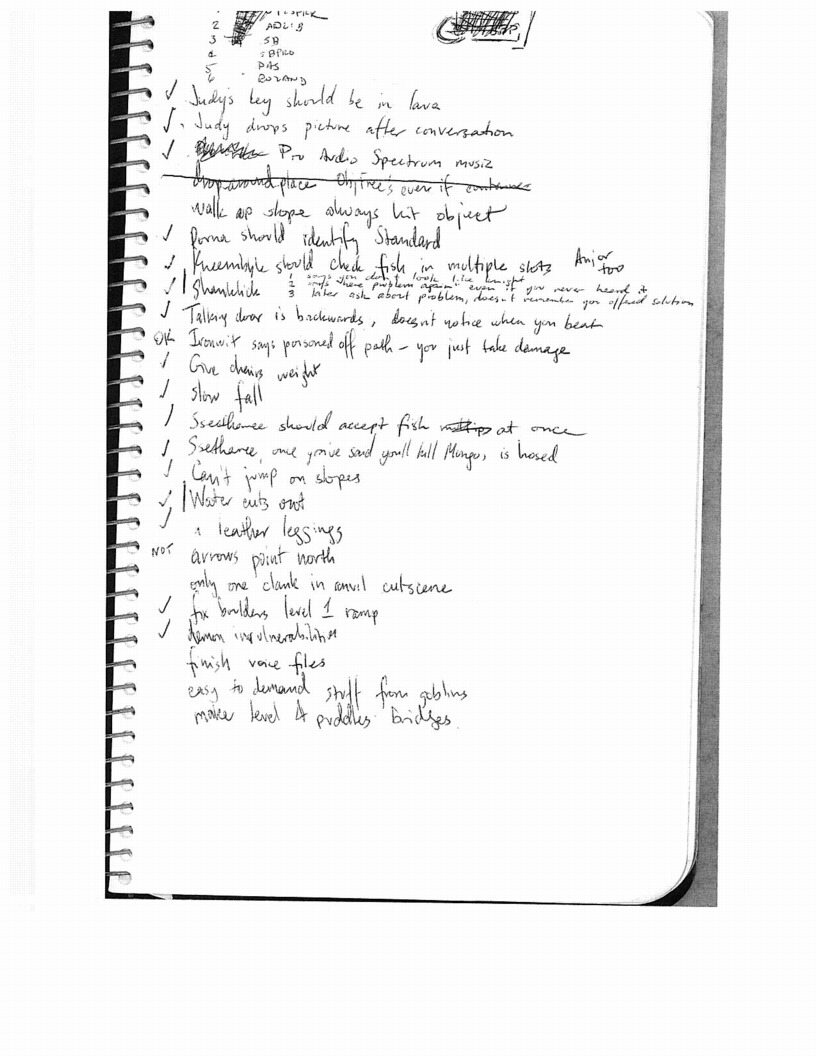 2 ADLIB
3 SB
4 SBPRO
5 PAS
6 ROLAND
✓ Judy's key should be in lava
✓ Judy drops picture after conversation
✓ Pro Audio Spectrum music
drop around place ObjFree's even if
walk up slope always hit object
✓ Dorna should identify Standard
✓ Kneenibble should check fish in multiple slots Anjor too
✓ Shanklick 1 says you don't look like knight
2 says "here problem again" even if you never heard it
3 later ask about problem, doesn't remember you offered solution
✓ Talking door is backwards, doesn't notice when you beat
OK Ironwit says poisoned off path - you just take damage
✓ Give chairs weight
✓ slow fall
✓ Sseetharee should accept fish at once
✓ Ssetharee, once you've said you'll kill Mongo, is hosed
✓ Can't jump on slopes
✓ Water cuts out
✓ a leather leggings
NOT arrows point north
only one clank in anvil cutscene
✓ fix boulders level 1 ramp
✓ demon invulnerabilities
finish voice files
easy to demand stuff from goblins
make level 4 puddles bridges